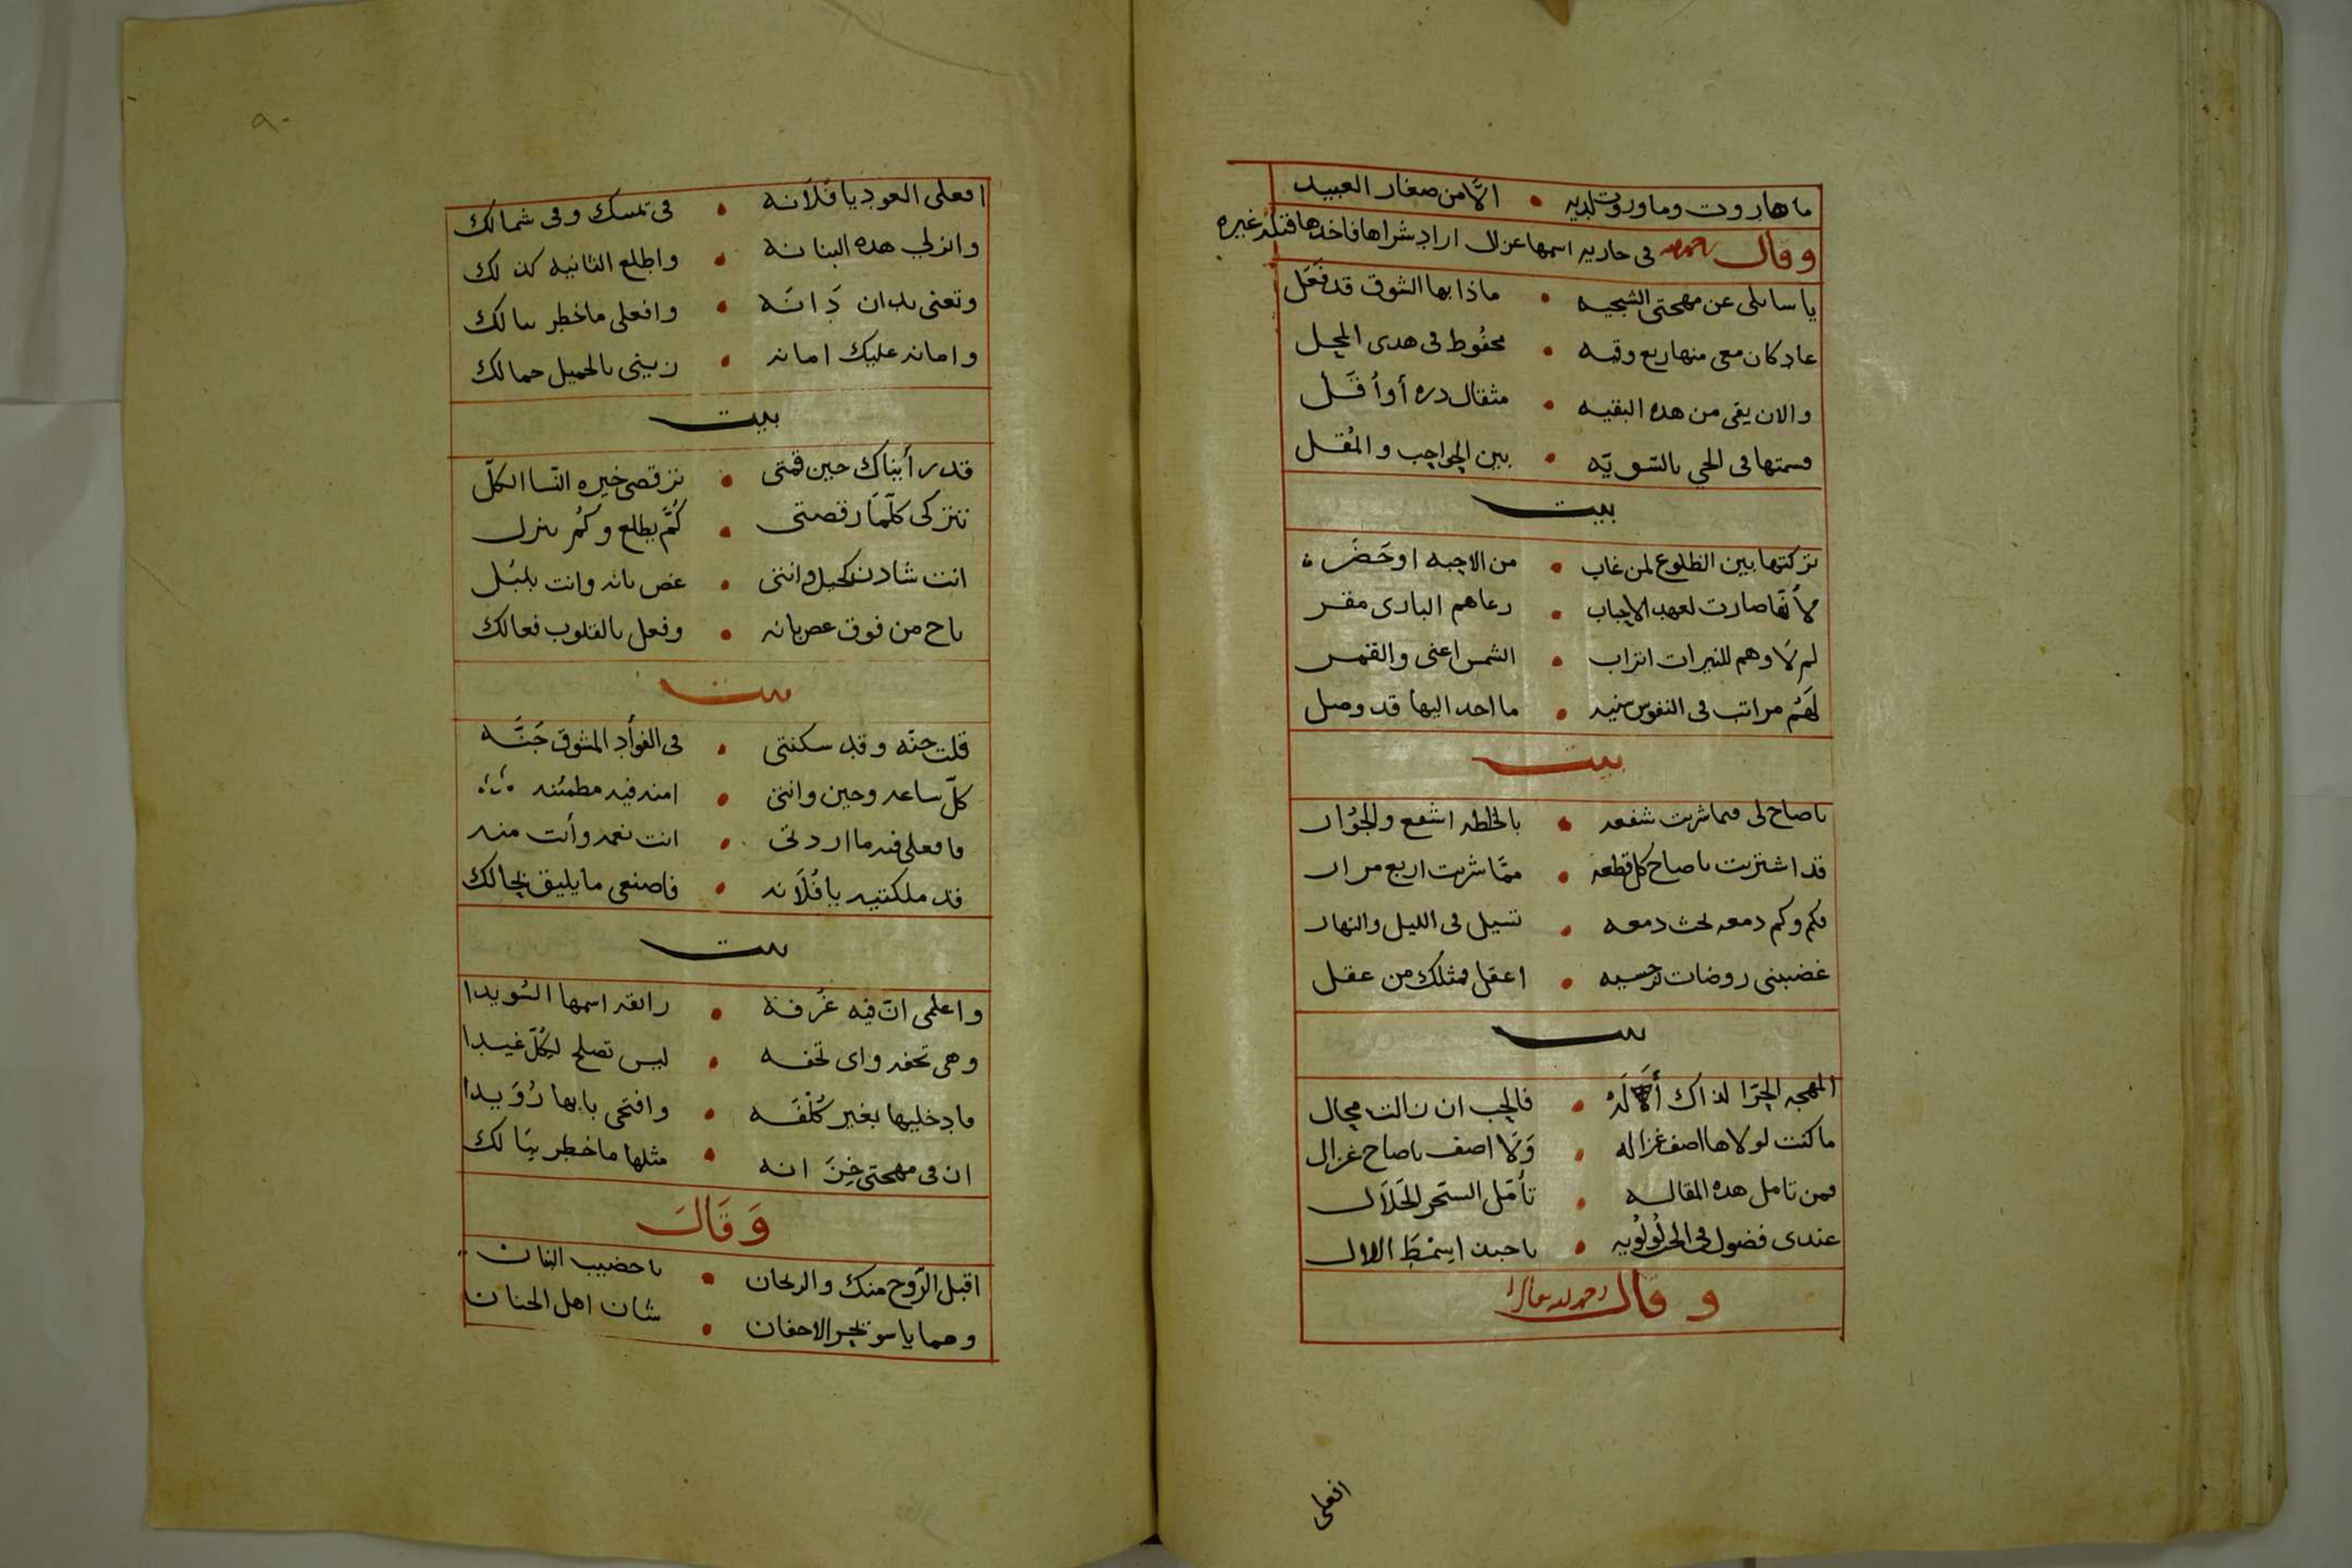 ما هاروت وما وروت لديه • الّا من صغار العبيد
وقال رحمه الله في جاريه اسمها غزال اراد شراها فاخذها قبله غيره
يا سائلي عن مهجتي الشجيه • ماذا بها الشوق قد فَعَل
عاد كان معي منها ربع وقيه • محفوظ في هدى المحِل
والان بقي من هذه البقيه • مثقال دره أو أقَل
قسمتها في الحي بالسّويّه • بين الحواجب والمُقل
بيت
تركتها بين الطلوع لمن غاب • من الاحبه او حَضَر
لأنّها صارت لعهد الاحباب • رعاهم الباري مقر
لم لَا وهم للنيرات اتراب • الشمس اعني والقمر
لَهُم مراتب في النفوس سنيه • ما احد اليها قد وصل
بيت
يا صاح لي فيما شريت شفعه • بالخلطه اشفع والجوُار
قد اشتريت يا صاح كل قطعه • ممّا شريت اربع مرار
فكم وكم دمعه تحث دمعه • تسيل في الليل والنهار
غضبني روضات نرجسيه • اعقل فمثلك من عقل
بيت
المهجه الحرّا لذاك أَلَهْ • فالحب ان نالت مجال
ما كنت لولاها اصف غزاله • وَلَا اصف يا صاح غزال
فمن تامل هذه المقاله • تأمّل السّحر الحَلَال
عندي فضول في الحب لُولُويه •
وقال رحمه الله تعالى
افعلي
٩٠
افعلي العود يا فُلَانه • في تمسك وفي شمالك
وانزلي هذه البنانه • واطلع الثانيه كذلك
وتغني بدان دَانَه • وافعلي ما خطر ببالك
وامانه عليك امانه • زيني بالجميل جمالك
بيت
قد رأيناك حين قمتي • ترقصي خيره النّسا الكلّ
تتركي كلّمَا رقصتي • كُمّ يطلع وكُم ينزل
انت شادن كحيل وانتي • غصن بانه وانت بلبُل
ناح من فوق غصن بانه • وفعل بالقلوب فعالك
بيت
قلت جنّه وقد سكنتي • في الفوأد المشوق جَنَّه
كلّ ساعه وحين وانتي • امنه فيه مطمئنه
فافعلي فيه ما اردتي • انت نعمه وأنت منه
قد ملكتيه يا فُلَانه • فاصنعي ما يليق بحالك
بيت
واعلمي انّ فيه غُرفة • رائقه اسمها السُويدا
وهي تحفه واي تحفه • ليس تصلح لِكُلّ غيدا
فادخليها بغير كُلْفَه • وافتحي بابها رُوَيدا
ان في مهجتي خِزَانه • مثلها ما خطر بِبَالك
وَقَالَ
اقبل الرّوح منك والريحان • يا قضيب البان
وهما ياسو بحبر الاجفان • شان اهل الجنان